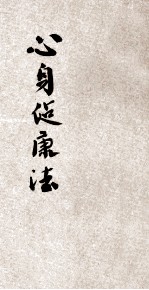 心身健康法